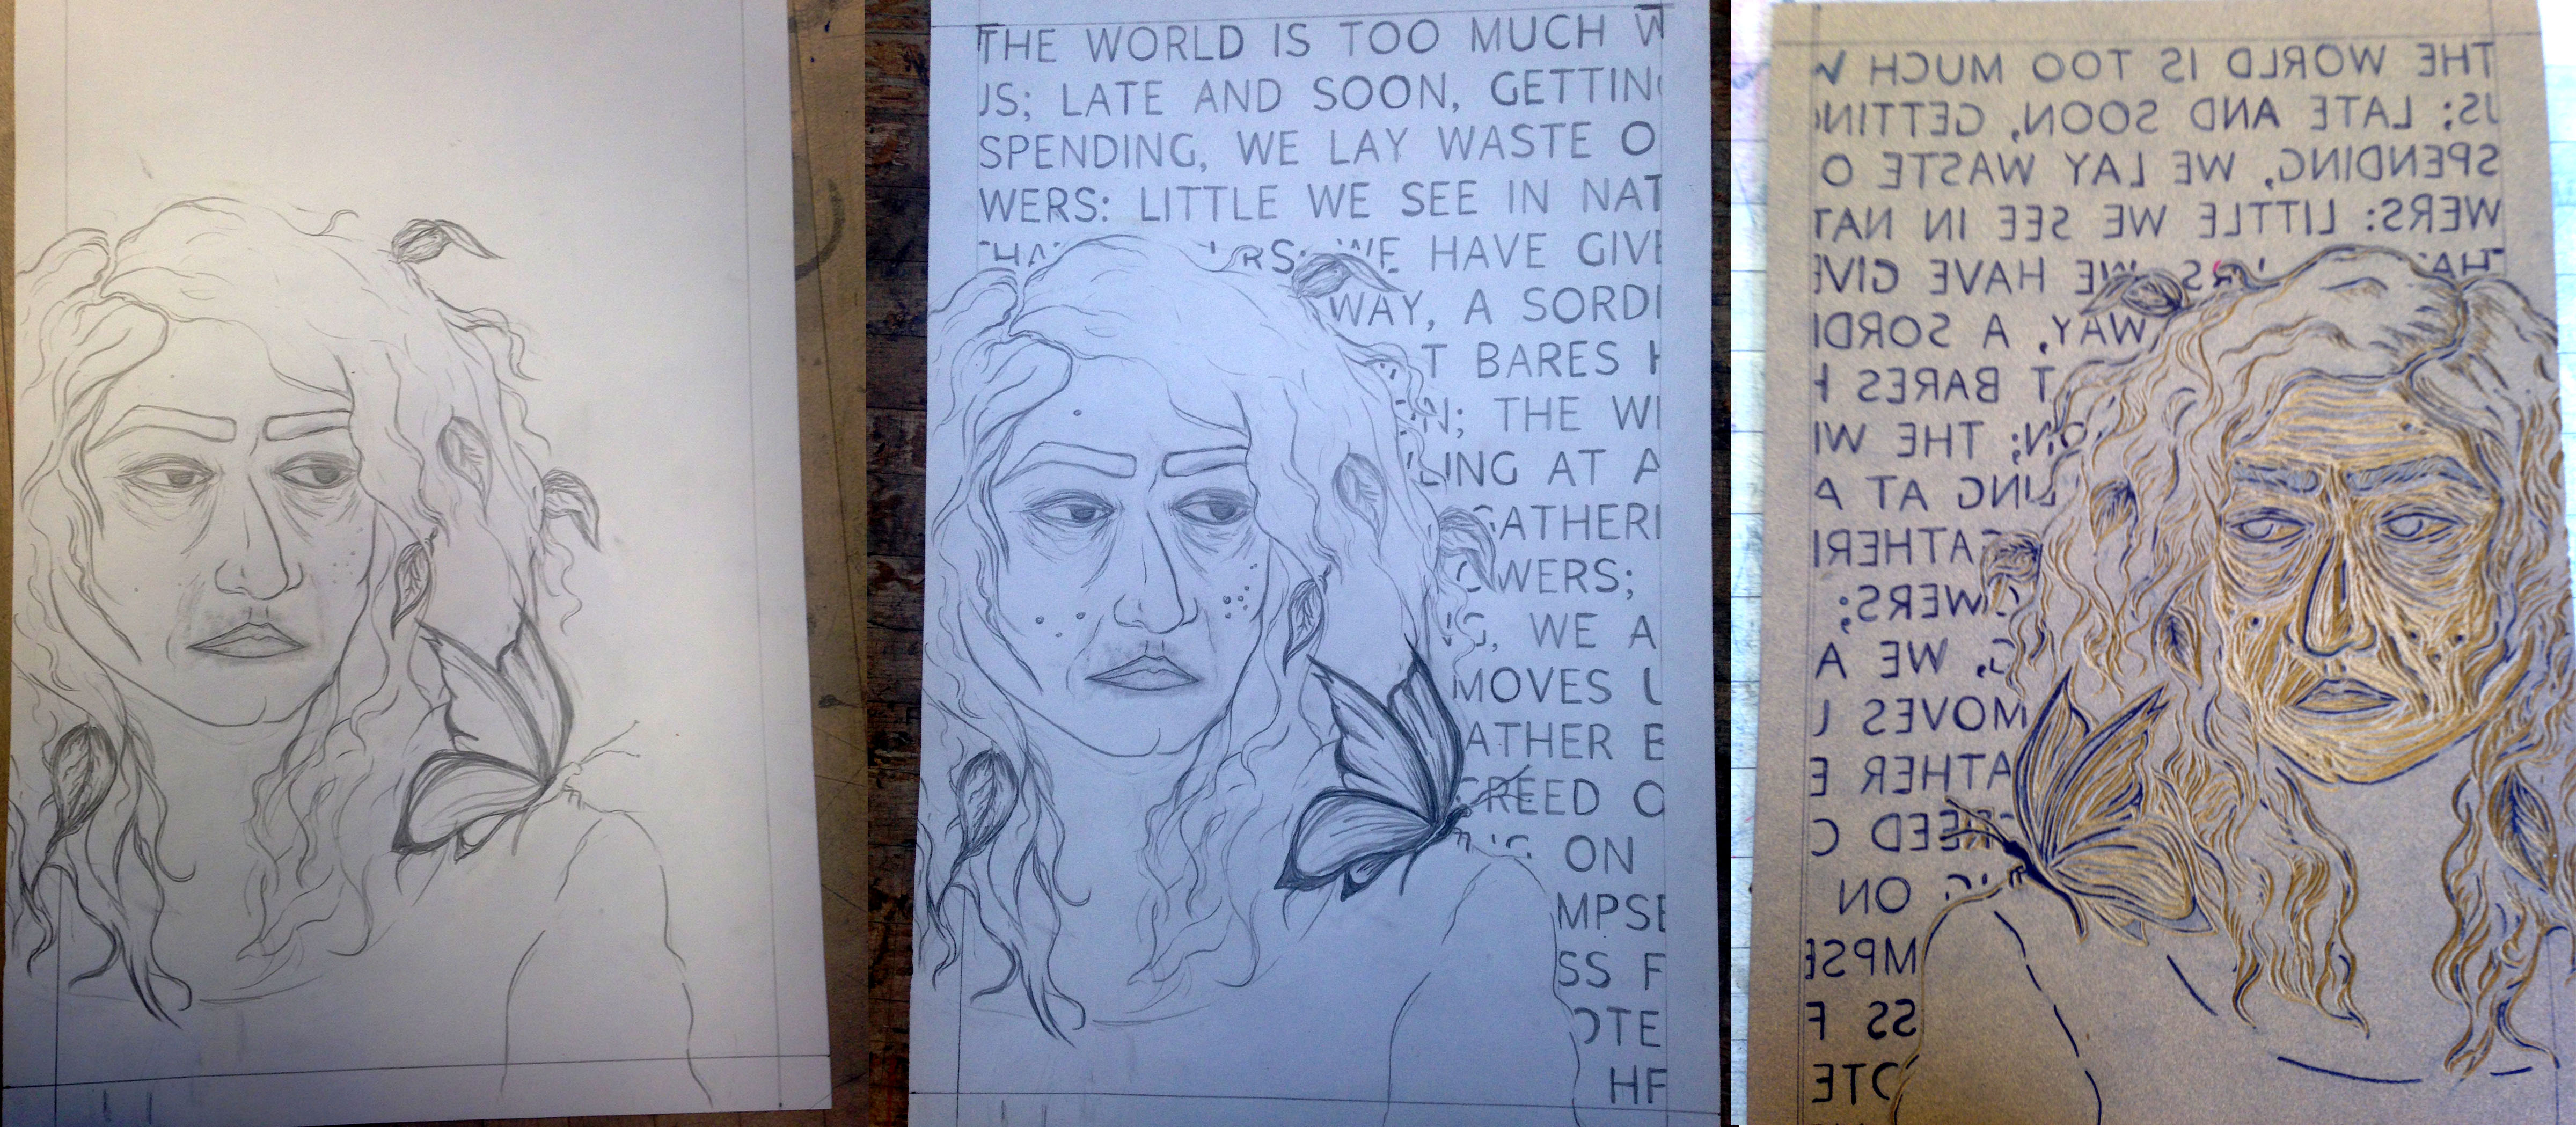 THE WORLD IS TOO MUCH W
US; LATE AND SOON, GETTING
SPENDING, WE LAY WASTE O
WERS: LITTLE WE SEE IN NAT
THA RS: WE HAVE GIVE
WAY, A SORDI
T BARES H
N; THE WI
LING AT A
GATHERI
OWERS;
G, WE A
MOVES U
ATHER B
CREED O
ON
MPSE
SS F
OTE
HE
THE WORLD IS TOO MUCH W
US; LATE AND SOON, GETTING
SPENDING, WE LAY WASTE O
WERS: LITTLE WE SEE IN NAT
THA RS: WE HAVE GIVE
WAY, A SORDI
T BARES H
ON; THE WI
LING AT A
GATHERI
OWERS;
G, WE A
MOVES U
ATHER E
CREED O
ON
MPSE
SS F
OTE